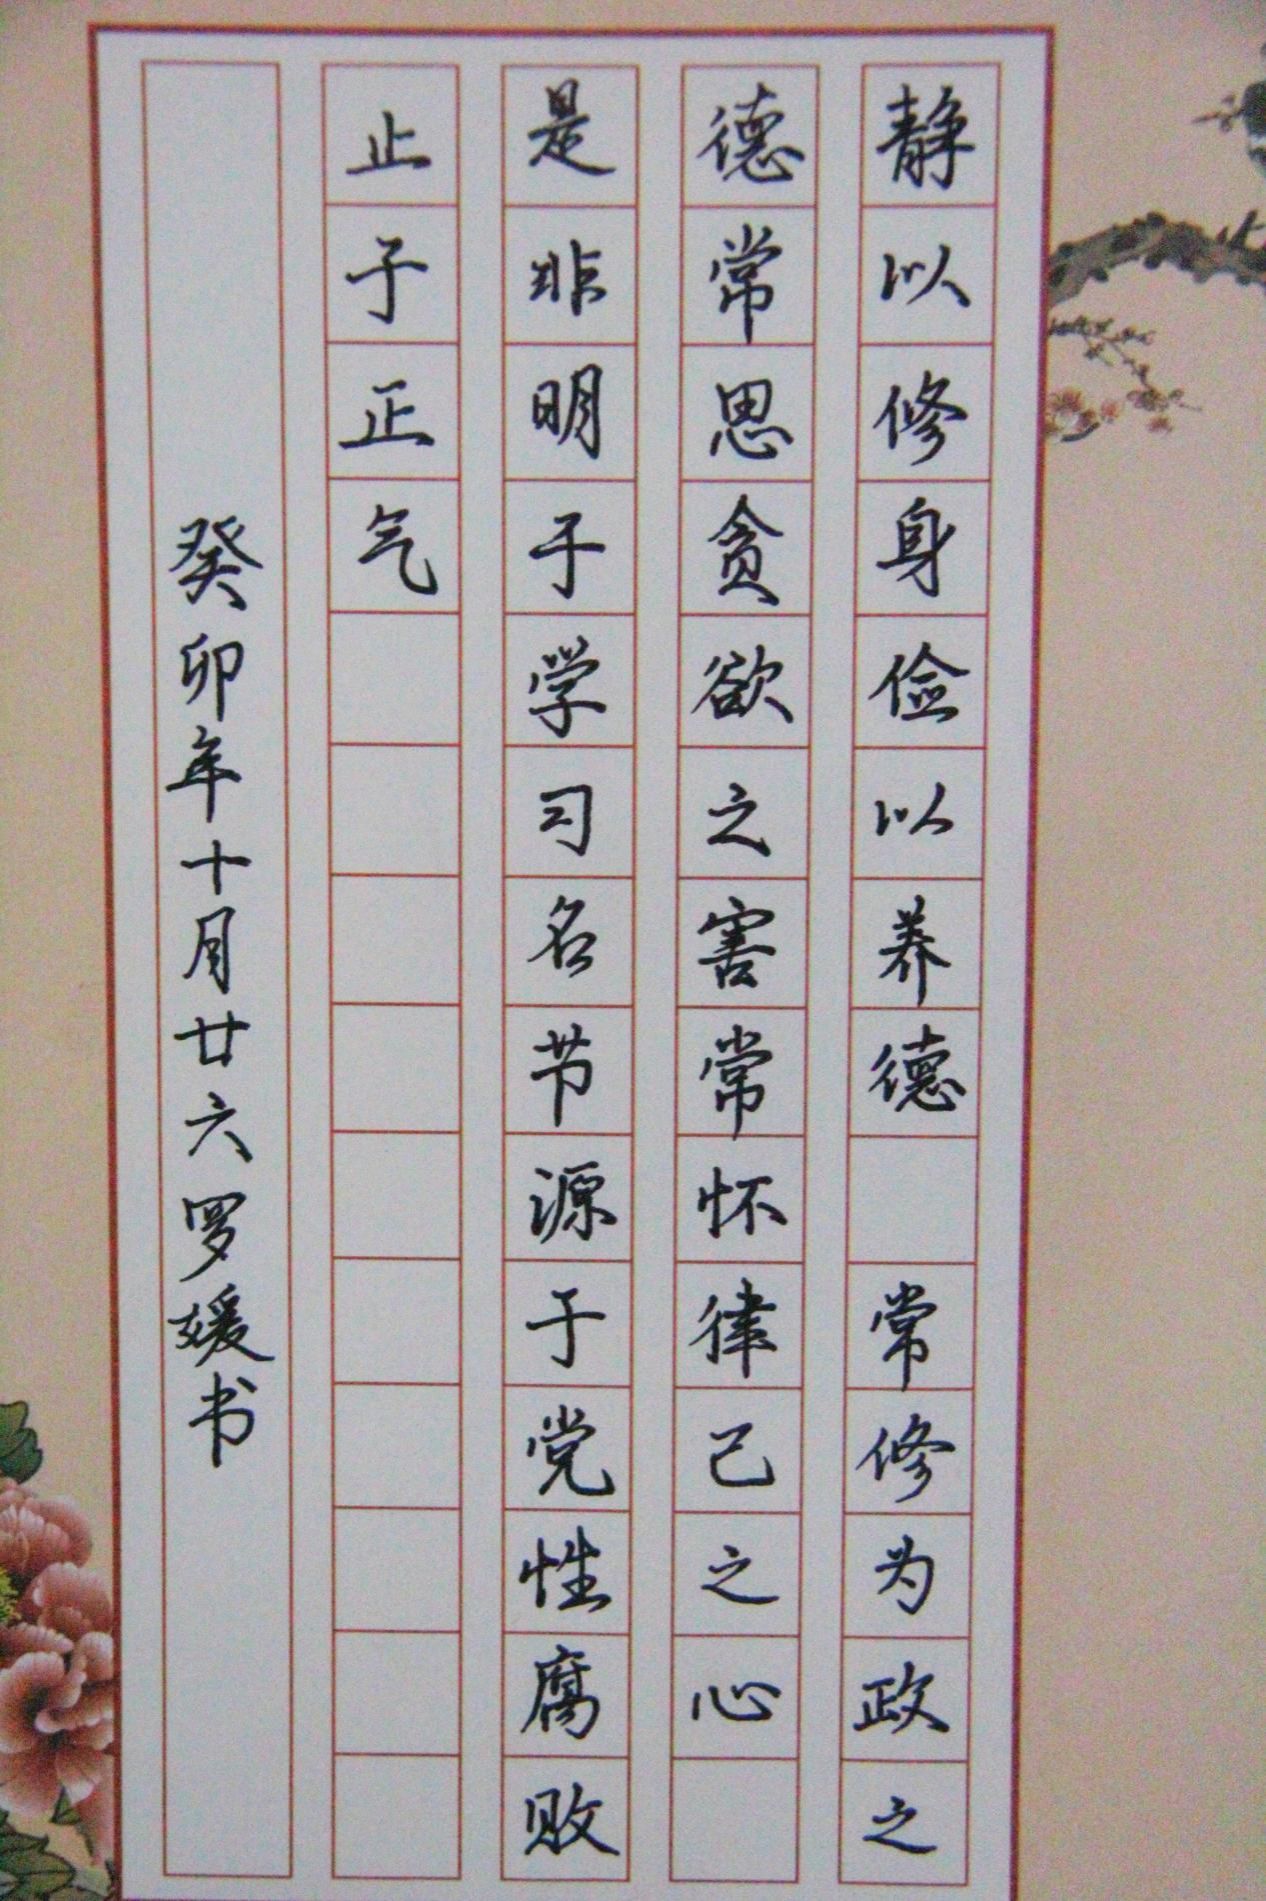 静以修身俭以养德 常修为政之
德常思贪欲之害常怀律己之心
是非明于学习名节源于党性腐败
止于正气
癸卯年十月廿六罗媛书